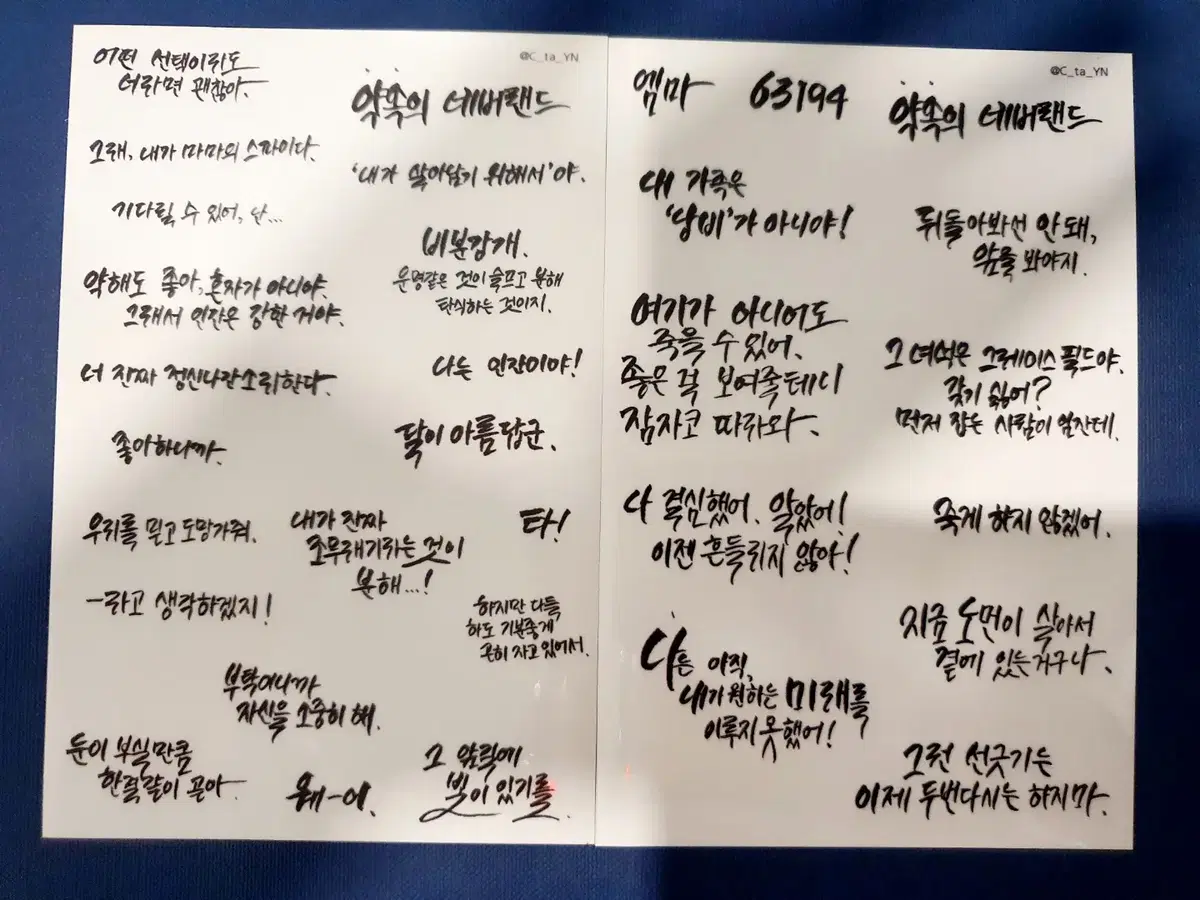 어떤 선택이라도
너라면 괜찮아.
@C_ta_YN
약속의 네버랜드
그래, 내가 마마의 스파이다.
'내가 살아남기 위해서'야.
기다릴 수 있어, 난...
비분강개.
운명같은 것이 슬프고 분해
탄식하는 것이지.
약해도 좋아, 혼자가 아니야.
그래서 인간은 강한 거야.
너 진짜 정신나간소리한다.
나는 인간이야!
좋아하니까.
달이 아름답군.
우리를 믿고 도망가줘.
내가 진짜
조무래기라는 것이
분해...!
타!
-라고 생각하겠지!
하지만 다들
하도 기분좋게
곤히 자고 있어서.
부탁이니까
자신을 소중히 해.
눈이 부실만큼
한결같이 곧아.
왜-애.
그 앞날에
빛이 있기를.
엠마 63194
@C_ta_YN
약속의 네버랜드
내 가족은
'낭비'가 아니야!
뒤돌아봐선 안 돼,
앞을 봐야지.
여기가 아니어도
죽을 수 있어.
좋은 걸 보여줄테니
잠자코 따라와.
그 녀석은 그레이스 필드야.
갖기 싫어?
먼저 잡는 사람이 임잔데.
나 결심했어. 알았어!
이젠 흔들리지 않아!
죽게 하지 않겠어.
나는 아직,
내가 원하는 미래를
이루지 못했어!
지금 노먼이 살아서
곁에 있는거구나.
그런 선긋기는
이제 두번다시는 하지마.